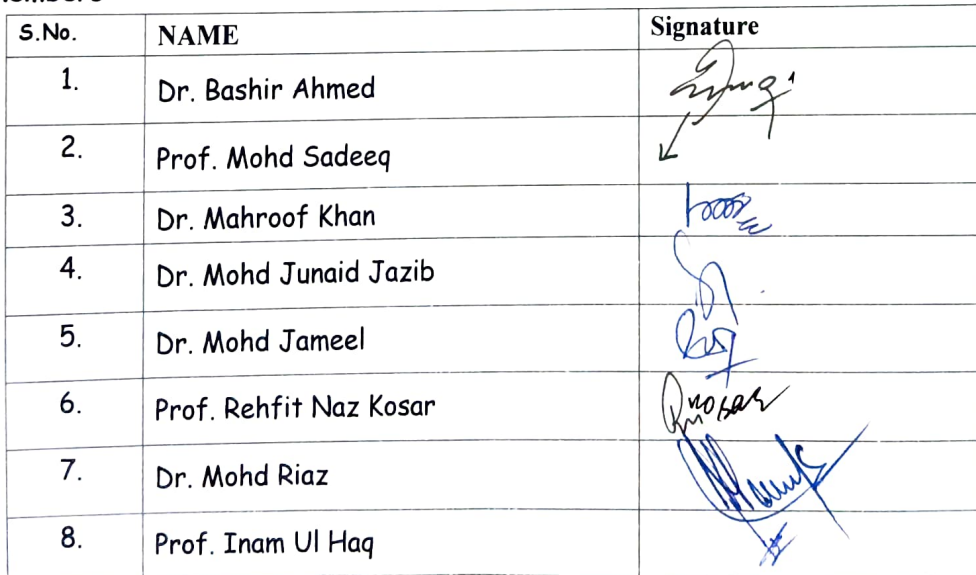 S.No. NAME Signature
1. Dr. Bashir Ahmed
2. Prof. Mohd Sadeeq
3. Dr. Mahroof Khan
4. Dr. Mohd Junaid Jazib
5. Dr. Mohd Jameel
6. Prof. Rehfit Naz Kosar
7. Dr. Mohd Riaz
8. Prof. Inam Ul Haq